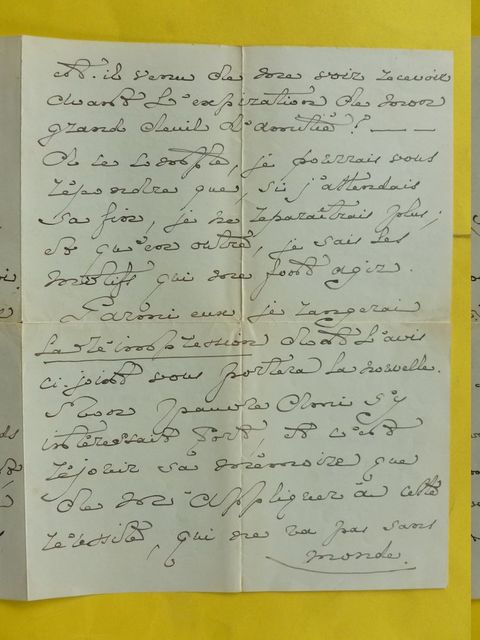 est-il venu de me voir recevoir
avant l'expiration de mon
grand deuil d'amitié ? — —
A ce compte, je pourrais vous
répondre que, si j'attendais
sa fin, je ne reparaîtrais plus ;
et qu'en outre, je sais les
motifs qui me font agir.
Parmi eux, je rangerai
la réimpression dont l'avis
ci-joint vous portera la nouvelle.
Mon pauvre Ami s'y
intéressait fort, et c'est
réjouir sa mémoire que
de m'appliquer à cette
réussite, qui ne va pas sans
monde.